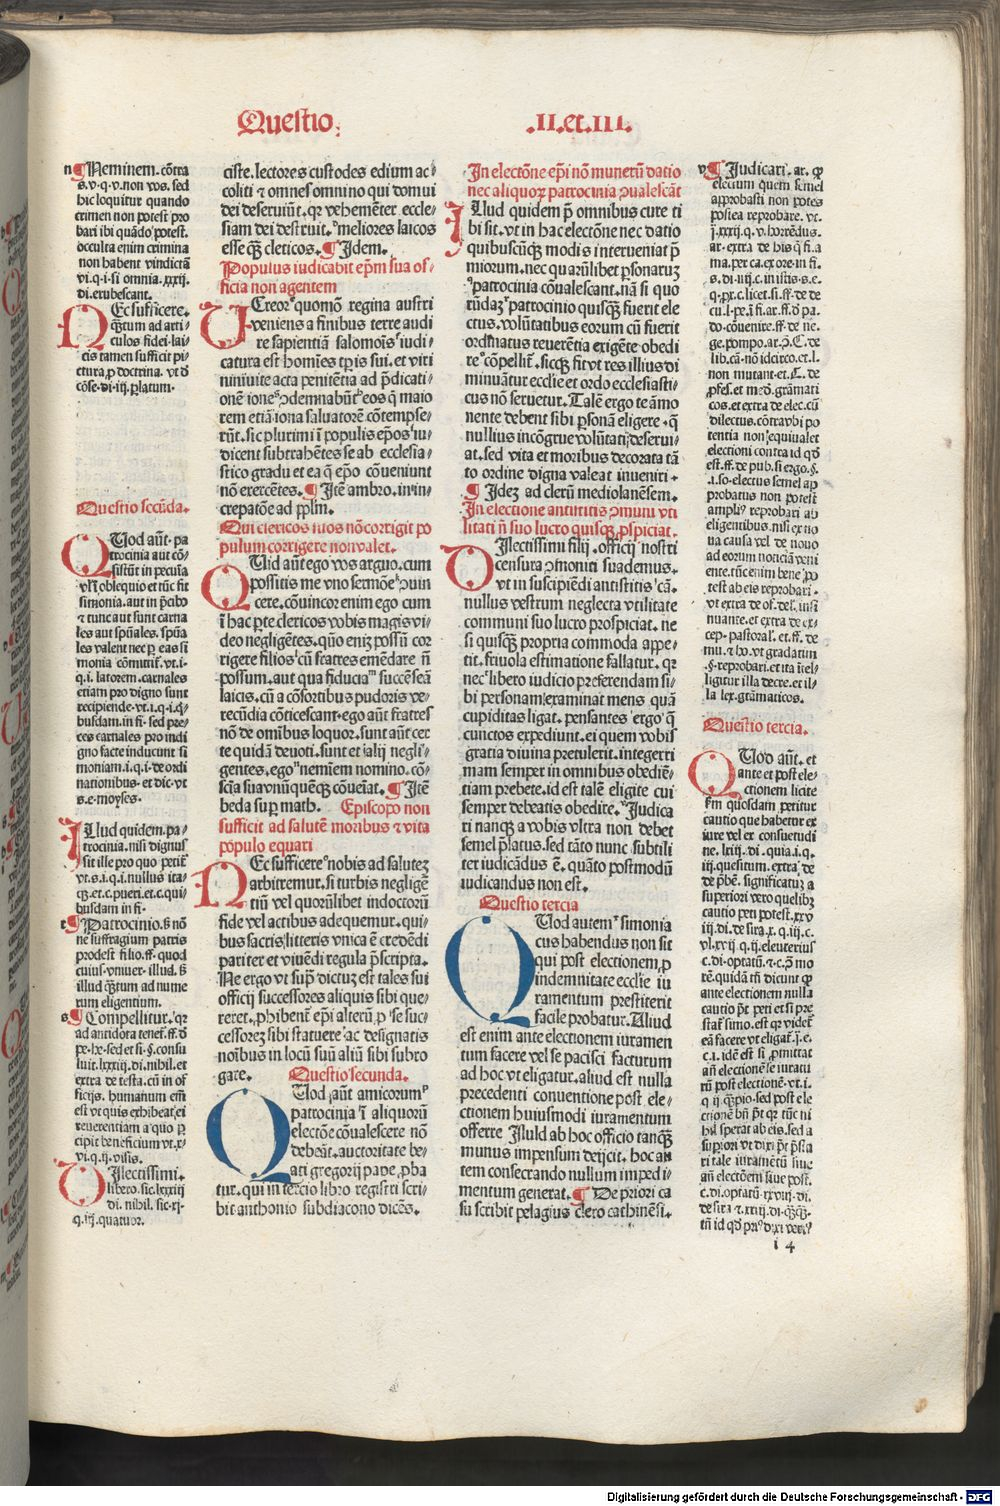 Questio.
.II.et.III.
n ¶ Neminem. cōtra
s.v.q.v. non vos. sed
hic loquitur quando
crimen non potest pro
bari ibi quādo potest.
occulta enim crimina
non habent vindictā
vi.q.i. si omnia. xxxij.
di. erubescant.
NEc sufficere.
q̄tum ad arti/
culos fidei. lai/
cis tamen sufficit pi/
ctura, p doctrina. vt đ
cōse. di. iij. perlatum.
Questio secūda.
QUod aūt. pa
trocinia aut cō/
sistūt in pecuīa
vel obsequio et tūc fit
simonia. aut in p̄cibo
et tunc aut sunt carna
les aut spūales. spūa
les valent nec per eas si
monia cōmittit̄. vt.i.
q.i. latorem. carnales
etiam pro digno sunt
recipiende. vt.i.q.i. q̄
busdam. in fi. sed pre/
ces carnales pro indi
gno facte inducunt si
moniam. i.q.i. de ordi
nationibus. et dic. vt
s.e. moyses.
Illud quidem. pa/
trocinia. nisi dignus
sit ille pro quo petit̄
vt.s.i.q.i. nullus ita/
q̄. et.c. pueri. et.c. qui/
busdam in fi.
r ¶ Patrocinio. s̄ nō
ne suffragium patris
prodest filio. ff. quod
cuius. vniuer. illud. s̄
illud q̄tum ad nume
rum eligentium.
s ¶ Compellitur. qr
ad antidota tenet̄. ff. đ
pe. he. sed et si. §. consu
luit. lxxxiij. di. nihil. et
extra de testa. cū in of
ficijs. humanum em̄
est vt quis exhibeat ei
reuerentiam a quo per
cipit beneficium vt. x/
vi.q.ij. visis.
DIlectissimi.
libero. sic. lxxxiij
di. nihil. sic. xj.
q.iij. quatuor.
ciste. lectores custodes edium ac/
coliti et omnes omnino qui domui
dei deseruiūt. qr vehemēter eccle/
siam dei destruit. meliores laicos
esse q̄ clericos. ¶ Idem.
Populus iudicabit ep̄m sua of/
ficia non agentem
UEreor quomō regina austri
veniens a finibus terre audi
re sapientiā salomōis iudi/
catura est homīes tp̄is sui. et viri
niniuite acta penitētia ad p̄dicati/
onē ione ꝯdemnabūt eos q maio
rem etiā iona saluatorē cōtempse/
rūt. sic plurimi ī populis ep̄os iu/
dicent subtrahētes se ab ecclesia/
stico gradu et ea q ep̄o cōueniunt
nō exercētes. ¶ Itē ambro. in in/
crepatōe ad pp̄lm.
Qui clericos suos nō corrigit po
pulum corrigere non valet.
QUid aūt ego vos arguo. cum
possitis me vno sermōe ꝯuin
cere. cōuincor enim ego cum
ī hac p̄te clericos vobis magis vi/
deo negligētes. quō eniꝫ possū cor
rigere filios cū fratres emēdare nō
possum. aut qua fiducia succēseā
laicis. cū a cōsortibus pudoris ve/
recūdia cōticescant. ego aūt fratres
nō de omibus loquor. sunt aūt cer
te quidā deuoti. sunt et alij negli/
gentes. ego nemiem nomino. cō/
sciā sua vnūquēq̄ cōueīat. ¶ Itē
beda suꝑ math. Episcopo non
sufficit ad salutē moribus et vita
populo equari
NEc sufficere nobis ad saluteꝫ
arbitremur. si turbis negligē
tiū vel quorūlibet indoctorū
fide vel actibus adequemur. qui/
bus sacris litteris vnica ē credēdi
pariter et viuēdi regula p̄scripta.
Ne ergo vt sup̄ dictuꝫ est tales sui
officij successores aliquis sibi que/
reret. phibent̄ ep̄i alterū, p se suc/
cessoreꝫ sibi statuere ac designatis
noībus in locū suū aliū sibi subro
gare. Questio secunda.
QUod aūt amicorum
patrocinia ī aliquorū
electōe cōualescere nō
debeāt. auctoritate be/
ati gregorij pape, pba
tur. qui in tercio libro registri scri/
bit anthonio subdiacono dicēs.
In electōne ep̄i nō munerū datio
nec aliquoꝝ patrocinia ꝯualescāt
Illud quidem p̄ omnibus cure ti
bi sit. vt in hac electōne nec datio
quibuscūq̄ modis interueniat p̄
miorum. nec quarūlibet ꝑsonaruꝫ
patrocinia cōualescant. nā si quo
rūdaꝫ patrocinio quisq̄ fuerit ele
ctus. volūtatibus eorum cū fuerit
ordīnatus reuerētia exigēte obedi
re cōpellit̄. sicq̄ fit vt res illius di
minuātur ecclīe et ordo ecclesiasti/
cus nō seruetur. Talē ergo te āmo
nente debent sibi ꝑsonā eligere. q
nullius incōgrue volūtati deserui/
at. sed vita et moribus decorata tā
to ordine digna valeat inueniri.
¶ Ideꝫ ad clerū mediolanēsem.
In electione antistitis ꝯmuni vti
litati nō suo lucro quisq̄ ꝓspiciat.
DIlectissimi filij. officij nostri
censura ꝯmoniti suademus.
vt in suscipiēdi antistitis cā.
nullus vestrum neglecta vtilitate
communi suo lucro prospiciat. ne
si quisq̄ propria commoda appe/
tit. friuola estimatione fallatur. qr
nec libero iudicio preferendam si/
bi personam examinat mens quā
cupiditas ligat. pensantes ergo q̄
cunctos expediunt. ei quem vobis
gratia diuina pretulerit. integerri
mam semper in omnibus obediē/
tiam prebete. id est talē eligite cui
semper debeatis obedire. Iudica
ri nanq̄ a vobis vltra non debet
semel p̄latus. sed tāto nunc subtili
ter iudicādus ē. quāto postmodū
iudicandus non est.
Questio tercia
QUod autem simonia
cus habendus non sit
qui post electionem, p
indemnitate ecclīe iu
ramentum prestiterit
facile probatur. Aliud
est enim ante electionem iuramen
tum facere vel se pacisci facturum
ad hoc vt eligatur. aliud est nulla
precedenti conuentione post ele/
ctionem huiusmodi iuramentum
offerre. Illuld ab hoc officio tanq̄
munus impensum deijcit. hoc au
tem consecrando nullum impedi/
mentum generat. ¶ De priori ca
su scribit pelagius clero cathinēsi.
v ¶ Iudicari. ar. q
electum quem semel
approbasti non potes
postea reprobare. vt.
i. xxij.q.v. horrēdus.
ar. extra de his q̄ fi. a
ma. per ca. ex ore. in fi.
s. di. iiij. c. in istis. s. e.
q. pr. c. licet. si. ff. de de
cu. l. pe. ī fi. ar. ff. đ pa/
do. cōuenire. ff. de ne.
ge. pompo. ar. ꝯ. C. de
lib. cā. nō idcirco. et. l.
non mutant. et. C. de
ꝓfes. et med. grāmati
cos. et extra de elec. cū
dilectus. cōtra vbi po
tentia non equiualet
electioni contra id qđ
est. ff. de pub. si ergo. §.
i. so. electus semel ap
probatus non potest
amplius reprobari ab
eligentibus. nisi ex no
ua causa vel de nouo
ad eorum noticiā veni
ente. tūc enim bene po
test ab eis reprobari.
vt extra de of. del. insi
nuante. et extra de ex/
cep. pastoral. et. ff. de
mu. et ho. vt gradatim
.§. reprobari. et ita itel/
ligitur illa decre. et il/
la lex. grāmaticos.
Questio tercia.
QUod aūt. et
ante et post ele/
ctionem licite
fm quosdam petitur
cautio que habetur ex
iure vel ex consuetudi
ne. lxiij. di. quia. i. q.
iij. quesitum. extra de
de p̄bē. significatuꝫ a
superiori vero quelibꝫ
cautio peti potest. xxv
iij. di. de sira. x. q. iij. c.
vl. xvij q. ij. eleuterius
c. di. optatū. et. c. ꝯ mo
rē. quidā tn̄ dicunt q
ante electionem nulla
cautio p̄t peti et si pre
stat̄ simo. est qr videt̄
eā facere vt eligat̄. j. e.
c. i. idē est si ꝓmittat
añ electionē se iuratu
rū post electionē. vt. i.
q ij q̄pio. sed post ele
ctionē bn̄ p̄t qr tūc ni
hil sperat ab eis. sed a
supiori vt dixi p̄t p̄sta
ri tale iuramētū siue
añ electōem siue post.
c. di. optatū. xxviij. di.
de sira et. xxiij. di. q̄q̄
tn̄ id qđ pri dixi veri
i 4
Digitalisierung gefördert durch die Deutsche Forschungsgemeinschaft - DFG